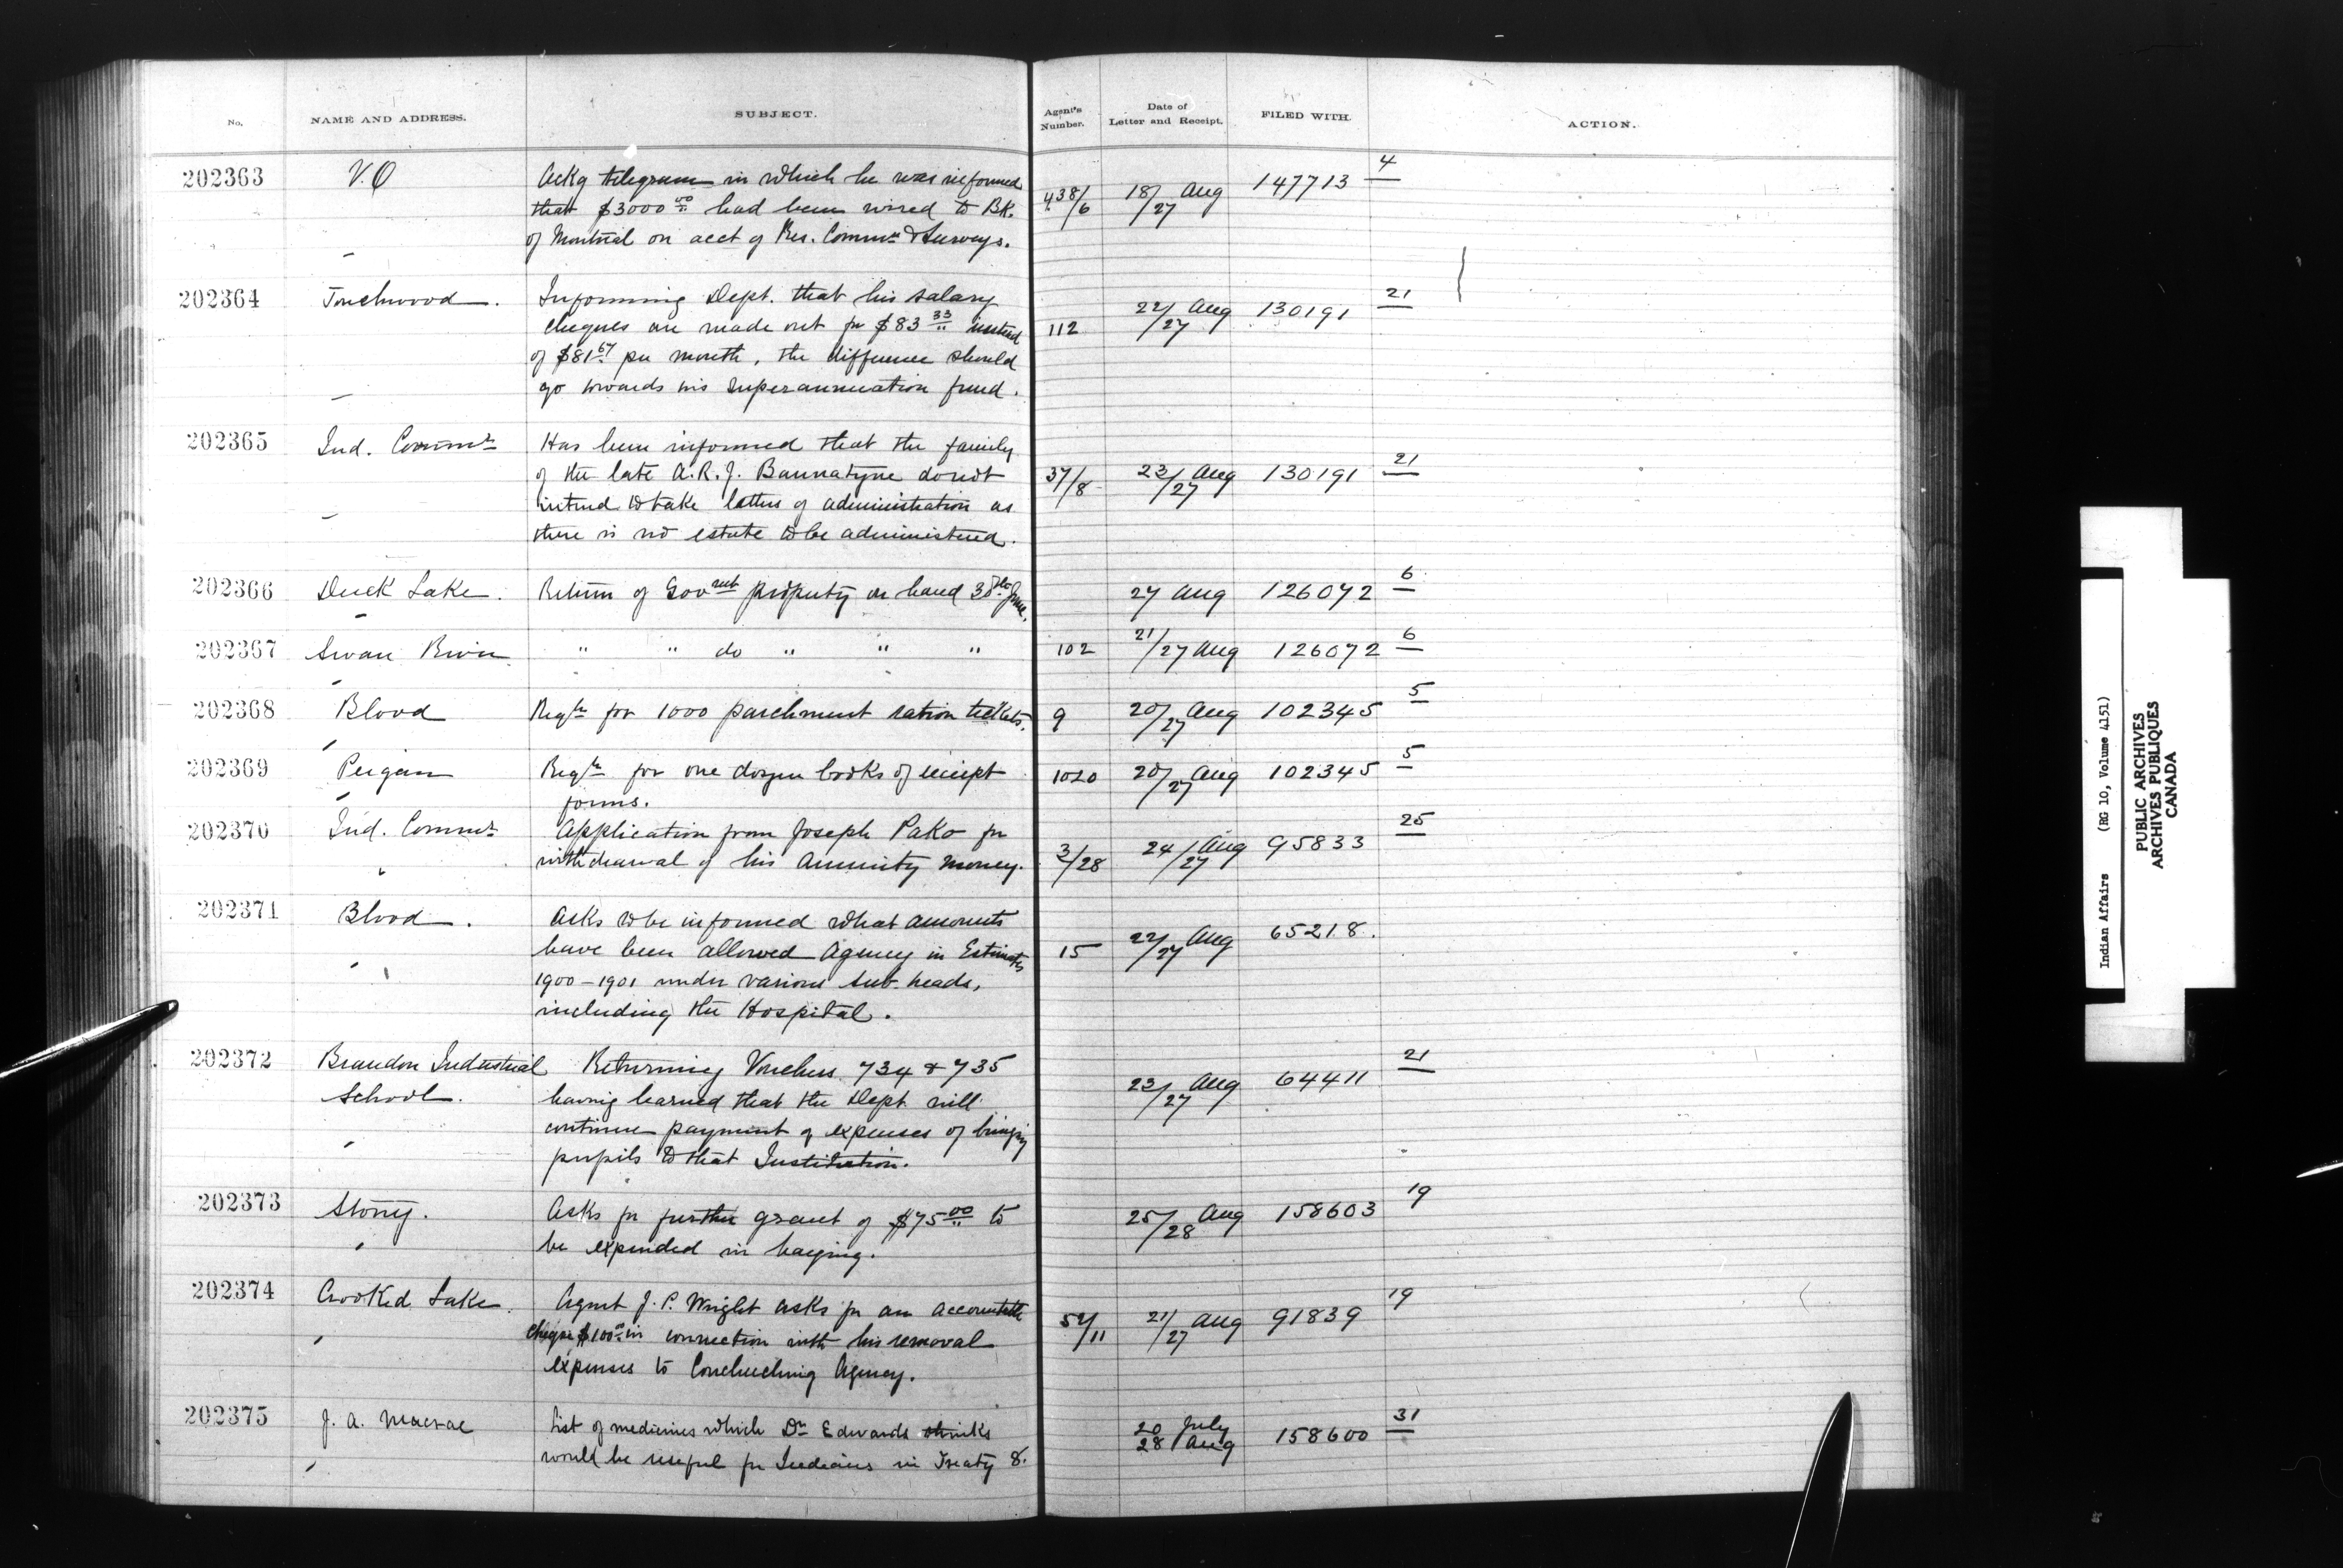 No. NAME AND ADDRESS. SUBJECT. Agent's Number. Date of Letter and Receipt. FILED WITH. ACTION.
202363 V.O Ackg telegram in which he was informed 438/6 18/27 Aug 147713 4
that $3000 00 had been wired to BK.
of Montreal on acct of Res. Commn & Surveys.
202364 Touchwood. Informing Dept. that his salary 112 22/27 Aug 130191 21
cheques are made out for $83 33 instead
of $81 67 per month, the difference should
go towards his superannuation fund.
202365 Ind. Commr Has been informed that the family 37/8 23/27 Aug 130191 21
of the late A.R.J. Bannatyne do not
intend to take letters of administration as
there is no estate to be administered.
202366 Duck Lake. Return of Govmt property on hand 30th June. 27 Aug 126072 6
202367 Swan River " " do " " " 102 21/27 Aug 126072 6
202368 Blood Reqtn for 1000 parchment ration tickets. 9 20/27 Aug 102345 5
202369 Peigan Reqtn for one dozen books of receipt 1020 20/27 Aug 102345 5
forms.
202370 Ind. Commr Application from Joseph Pako for 3/28 24/27 Aug 95833 25
withdrawal of his Annuity money.
202371 Blood. Asks to be informed what amounts 15 22/27 Aug 65218.
have been allowed Agency in Estimates
1900-1901 under various sub-heads,
including the Hospital.
202372 Brandon Industrial Returning Vouchers 734 & 735 23/27 Aug 64411 21
School. having learned that the Dept will
continue payment of expenses of bringing
pupils to that Institution.
202373 Stony. Asks for further grant of $75 00 to 25/28 Aug 158603 19
be expended in haying.
202374 Crooked Lake. Agent J. P. Wright asks for an accountable 21/27 Aug 91839 19
cheque $100 00 in connection with his removal
expenses to Couchiching Agency.
202375 J. A. Macrae List of medicines which Dr Edwards thinks 20 July 28 Aug 158600 31
would be useful for Indians in Treaty 8.
Indian Affairs (RG 10, Volume 4151)
PUBLIC ARCHIVES
ARCHIVES PUBLIQUES
CANADA